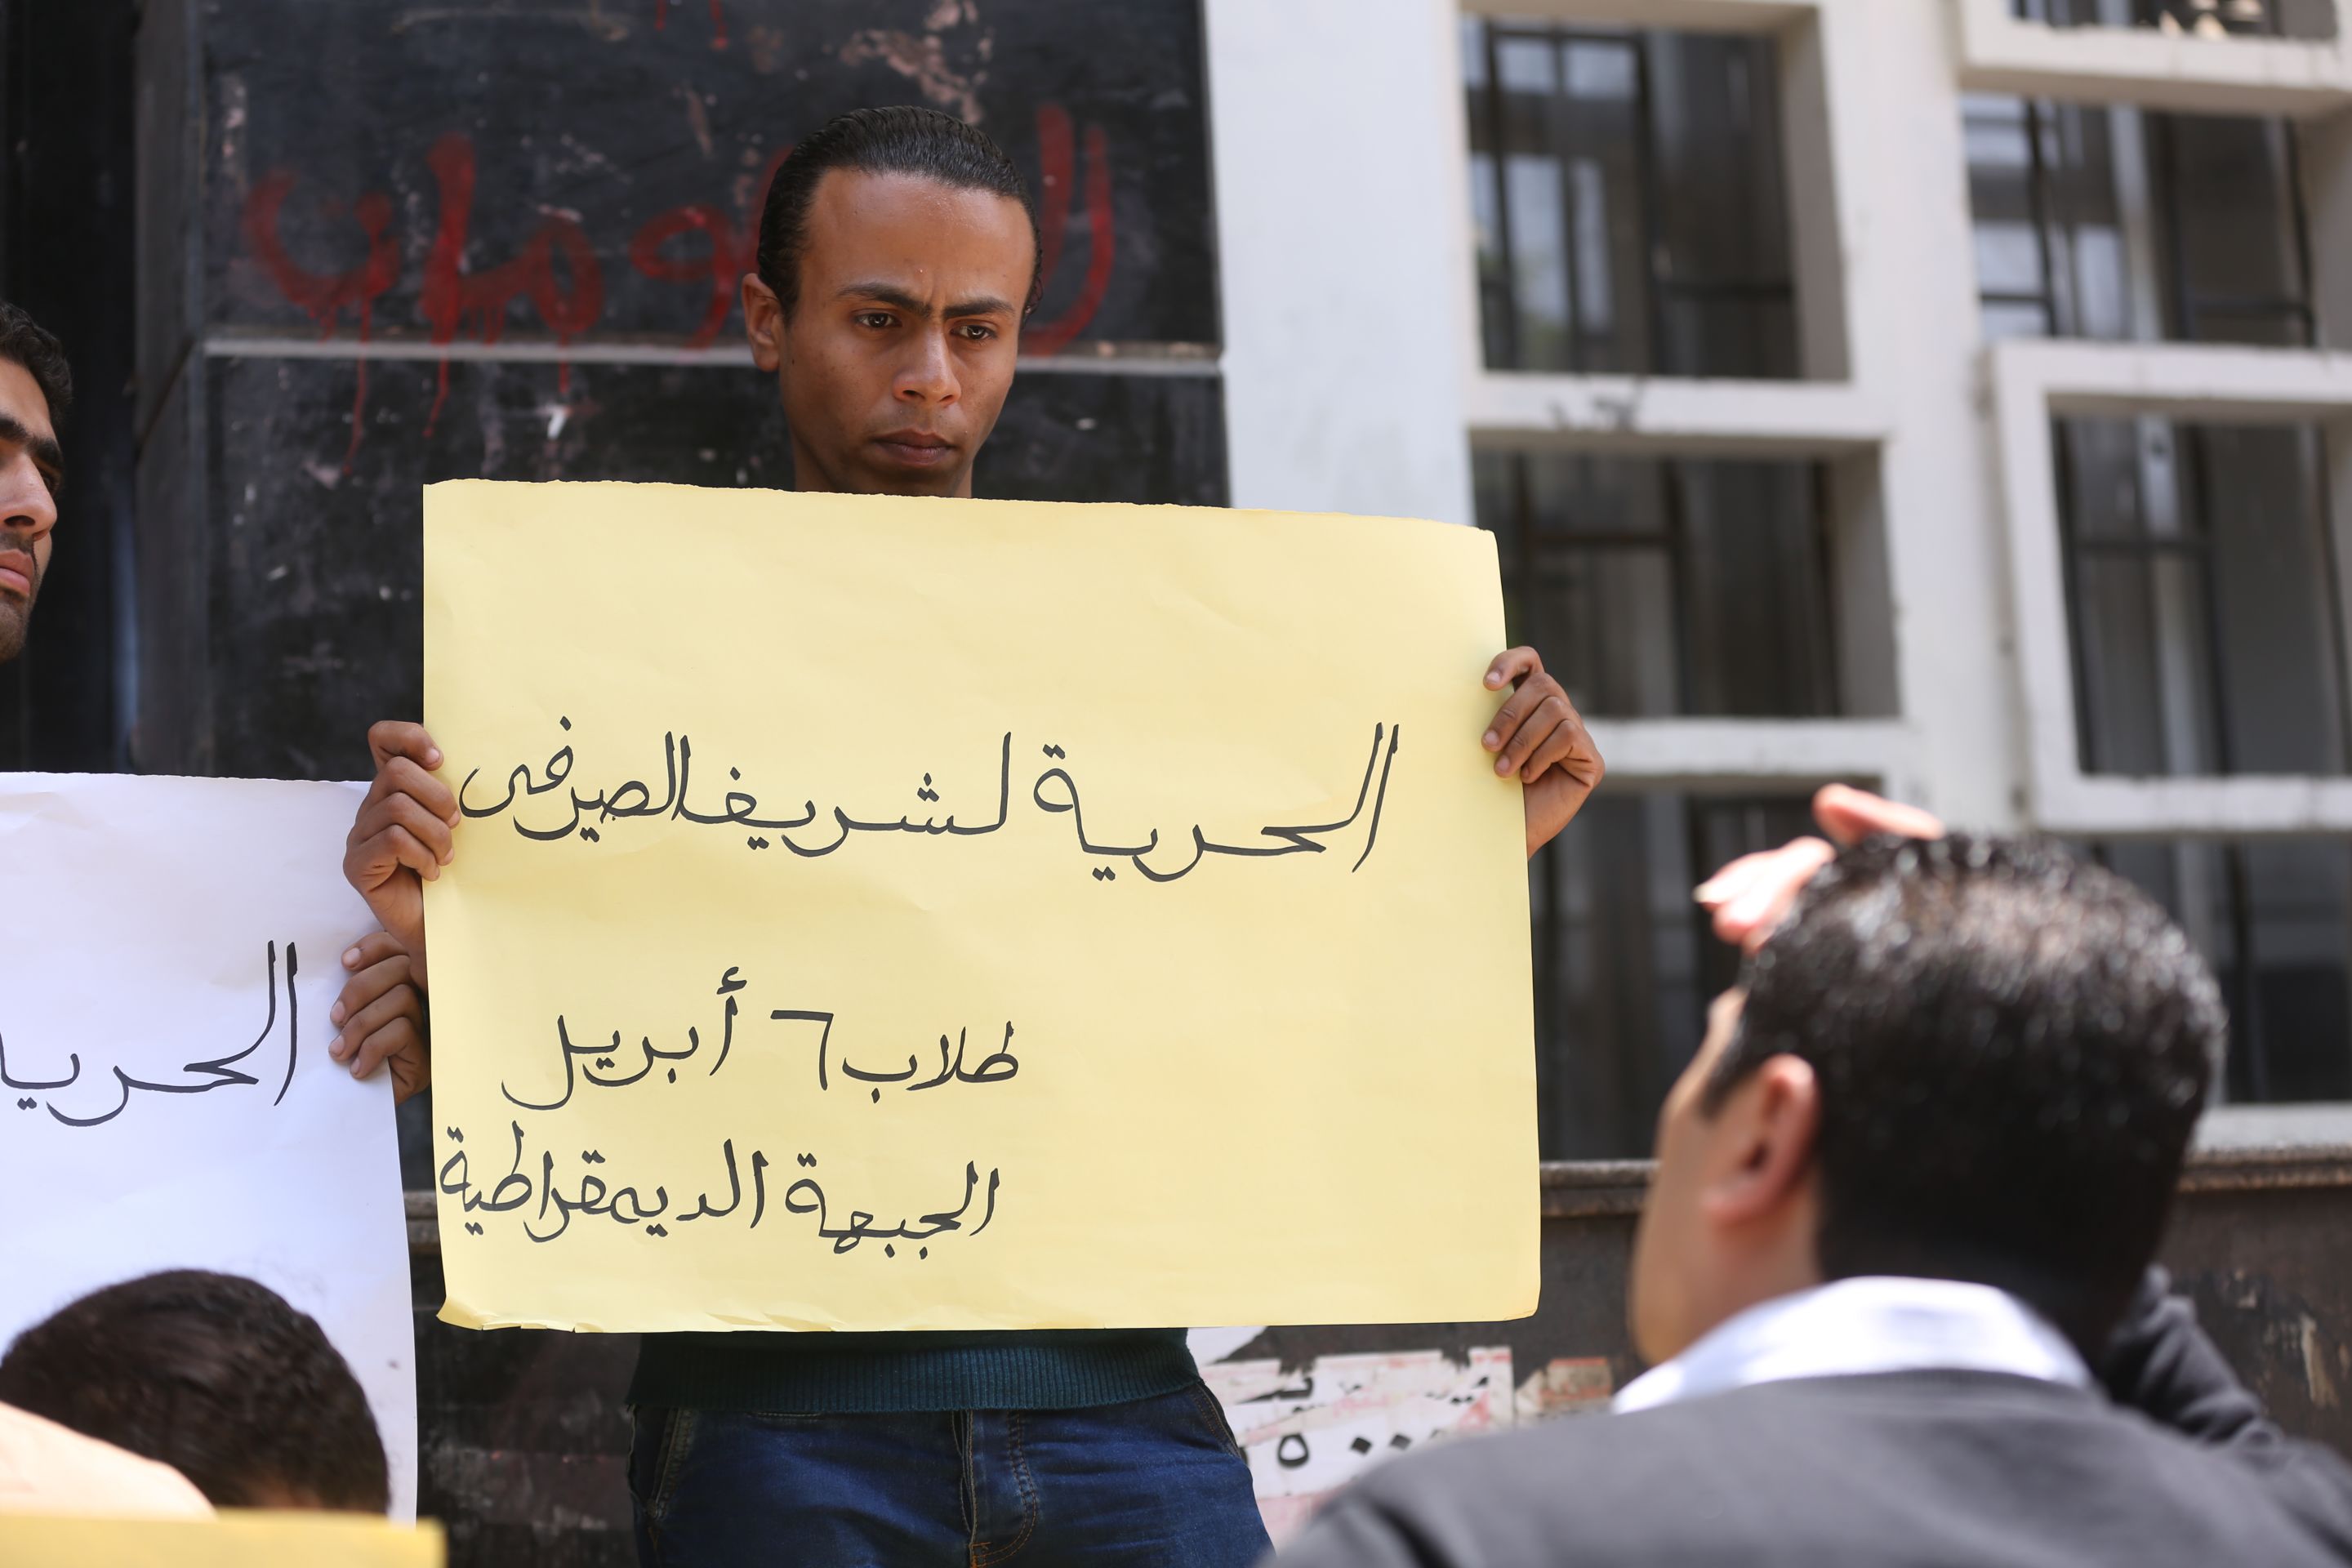 الحرية لشريف الصيرفى
طلاب ٦ أبريل
الجبهة الديمقراطية
الحرية